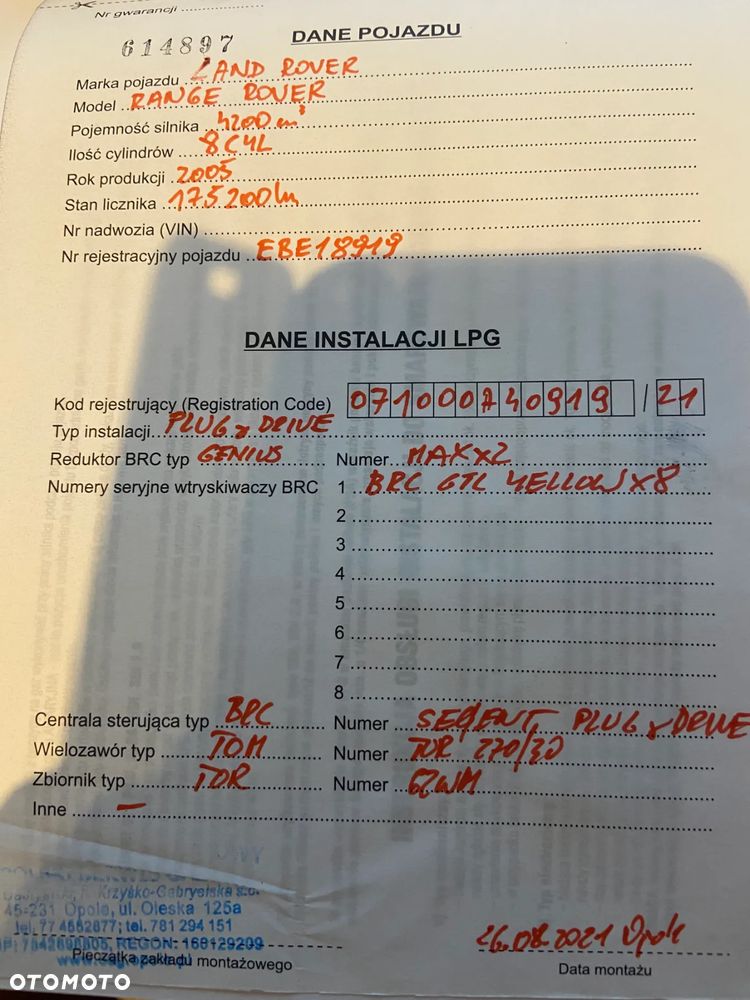 Nr gwarancji
614897
DANE POJAZDU
Marka pojazdu LAND ROVER
Model RANGE ROVER
Pojemność silnika 4200 cm³
Ilość cylindrów 8 CYL
Rok produkcji 2005
Stan licznika 175200 km
Nr nadwozia (VIN)
Nr rejestracyjny pojazdu EBE18919
DANE INSTALACJI LPG
Kod rejestrujący (Registration Code) 071000A40919 / 21
Typ instalacji PLUG & DRIVE
Reduktor BRC typ GENIUS Numer MAX x2
Numery seryjne wtryskiwaczy BRC 1 BRC GTL YELLOW x8
2
3
4
5
6
7
8
Centrala sterująca typ BRC Numer SEQENT PLUG & DRIVE
Wielozawór typ TOM Numer TOR 270/30
Zbiornik typ TOR Numer
Inne –
Krzyśko-Gabrysiska s.c.
45-231 Opole, ul. Oleska 125a
tel. 77 4552877; tel. 781 294 151
REGON: 160129209
Pieczątka zakładu montażowego
26.08.2021 Opole
Data montażu
OTOMOTO